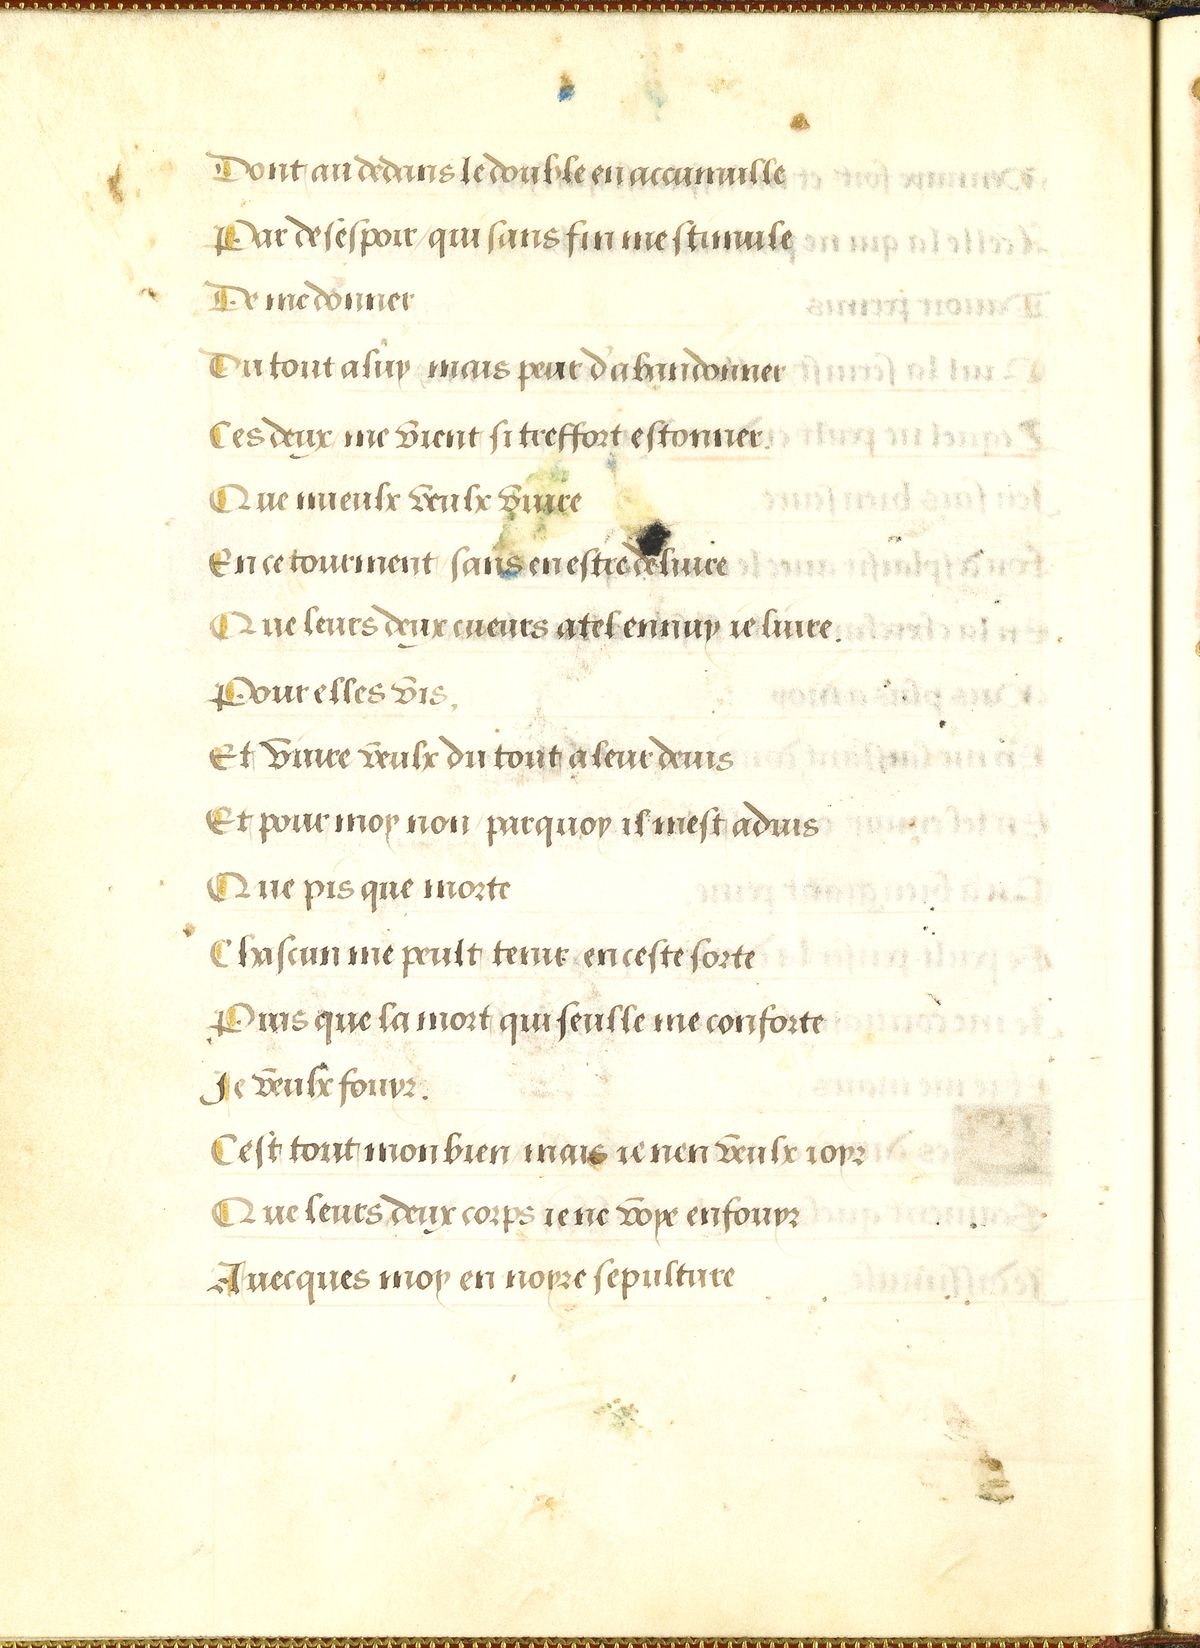 Dont au dedans le double en accumulle
Par desespoir / qui sans fin me stimule
De me donner
Du tout a luy / mais peur d'abandonner
Ces deux / me vient si treffort estonner.
Que mieulx veulx viure
En ce tourment / sans en estre deliure
Que leurs deux cueurs a tel ennuy ie liure.
Pour elles vis,
Et viure veulx du tout a leur deuis
Et pour moy non / parquoy il mest aduis
Que pis que morte
Chascun me peult tenir en ceste sorte
Puis que la mort qui seulle me conforte
Je veulx fouyr.
Cest tout mon bien / mais ie nen veulx ioyr
Que leurs deux corps ie ne voye enfouyr
Auecques moy en noyre sepulture